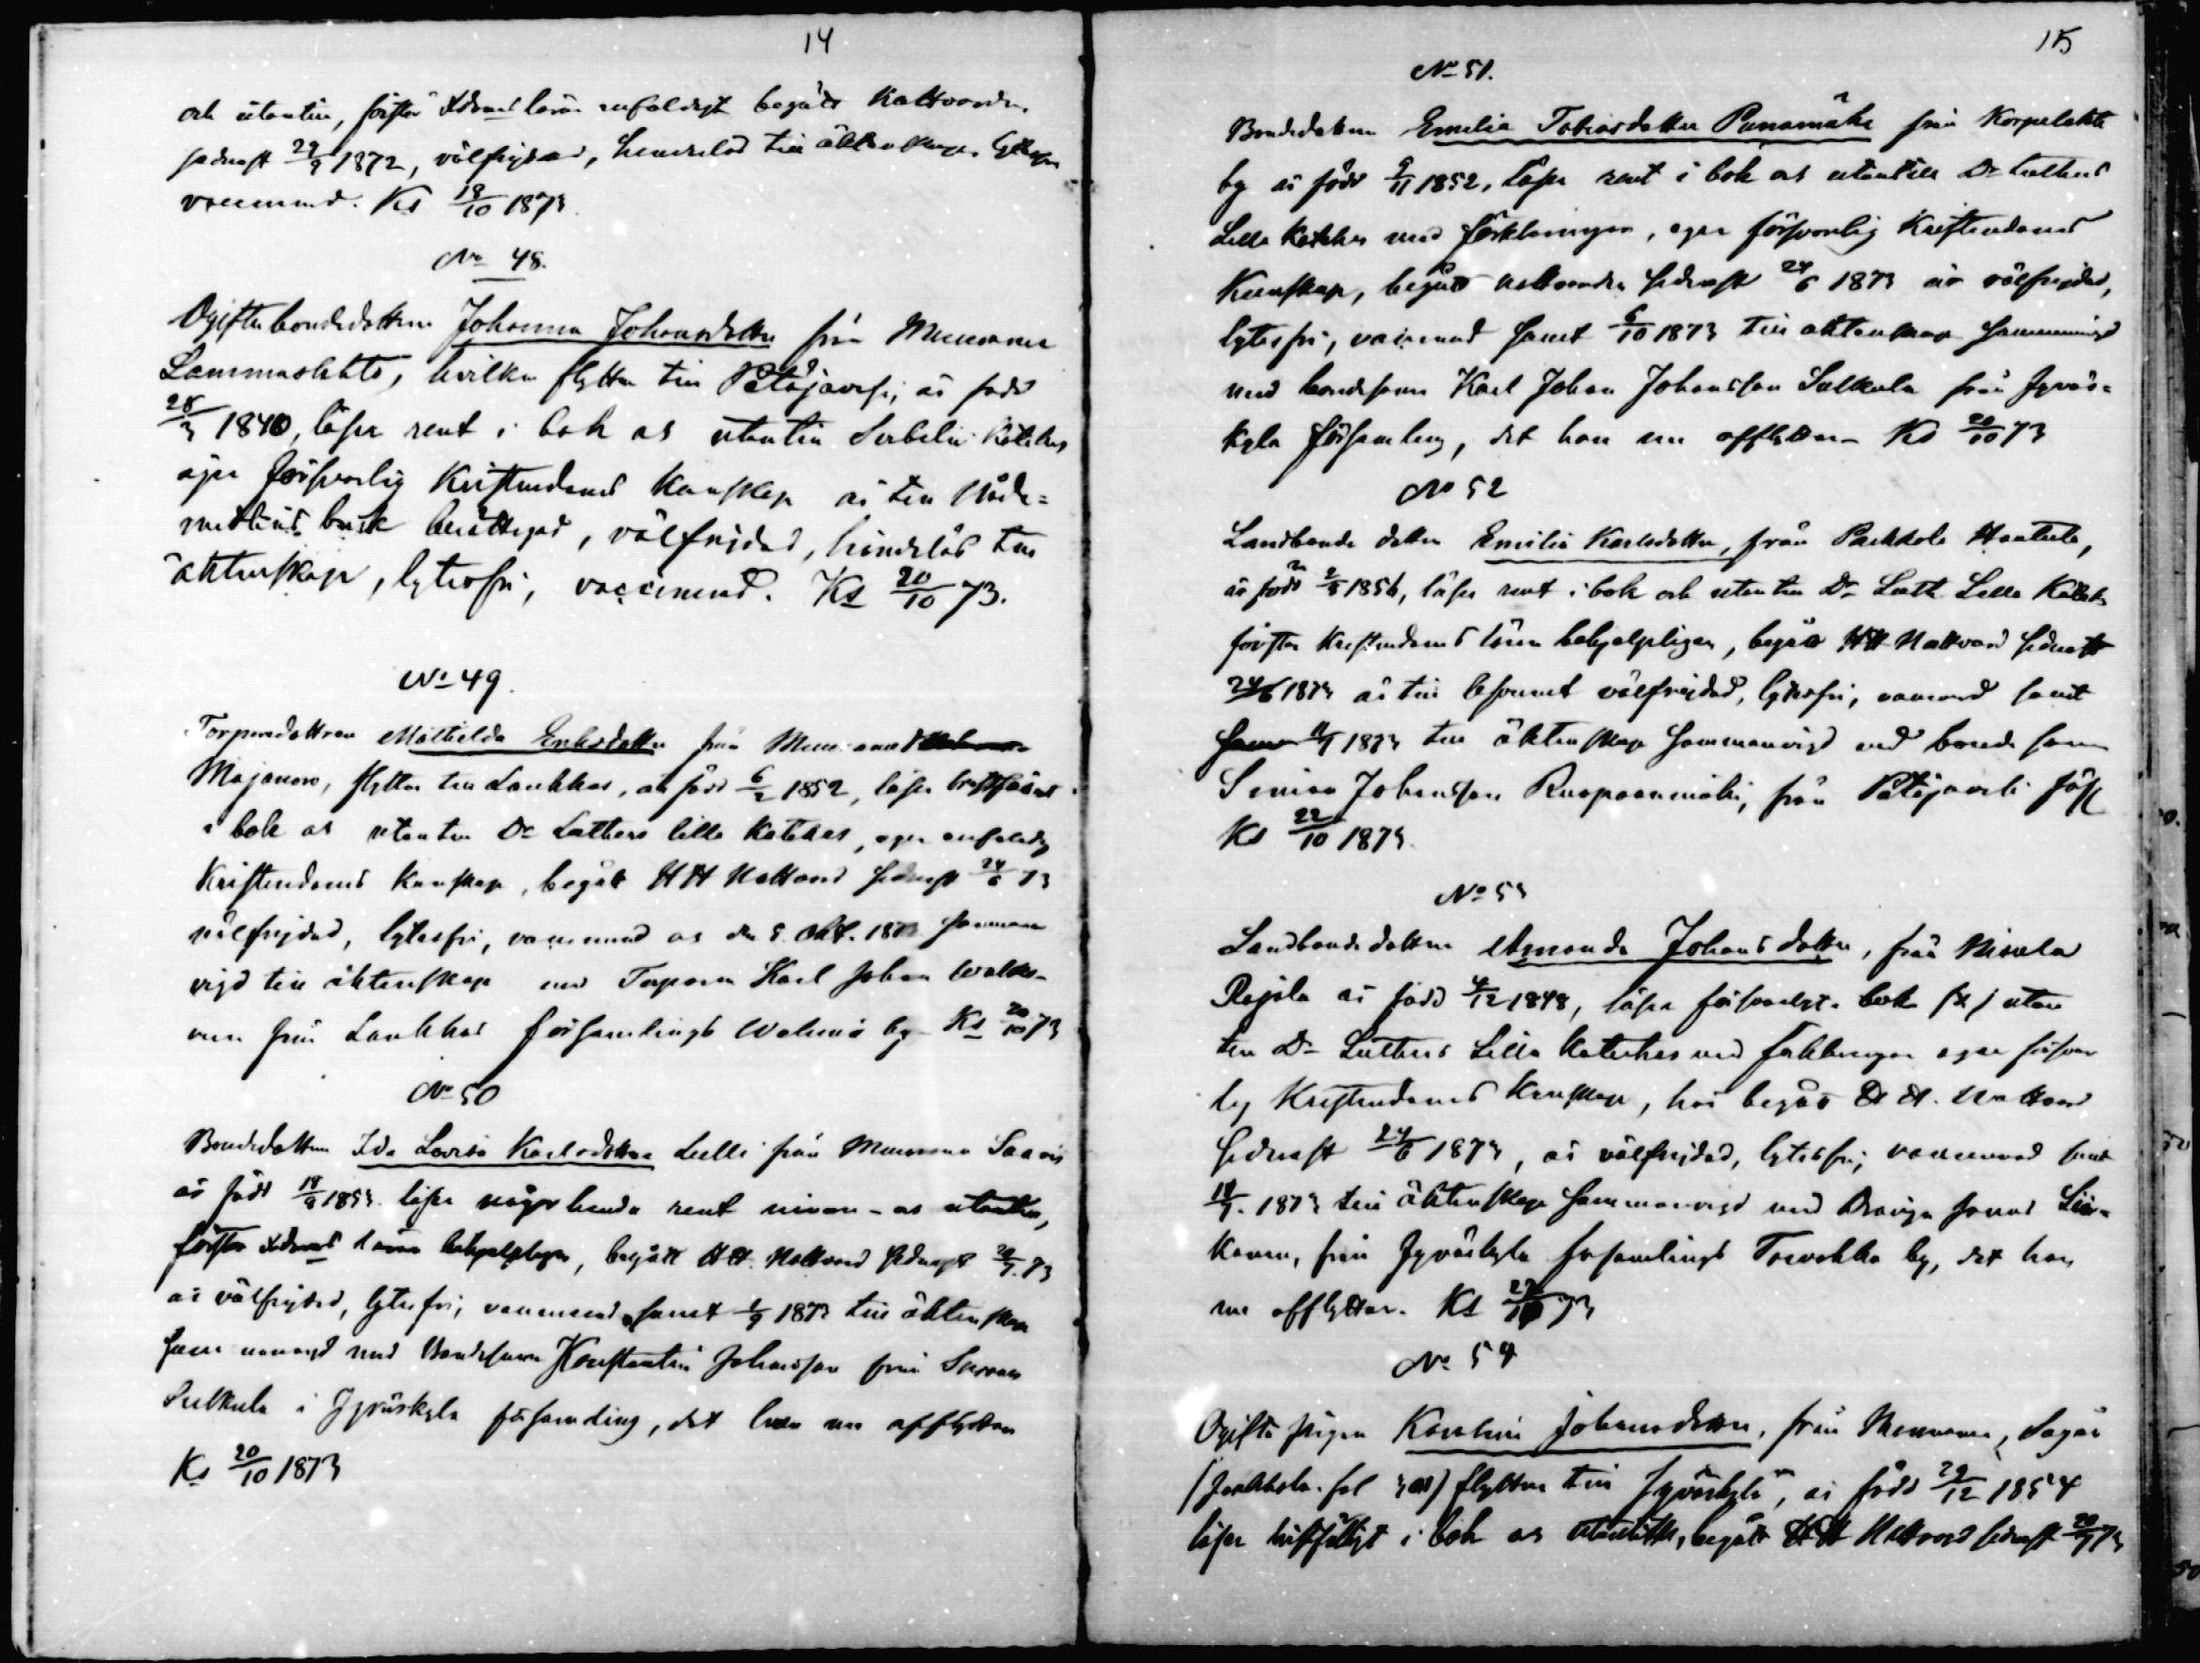 14
och utantill, förstår Xdomsläran enfaldigt begått Nattvarden
sednast 29/9 1872, välfrejdad, hinderlös till äktenskap, lytesfri
vaccinerad. Ks 18/10 1873.
No 48.
Ogifta bondedottren Johanna Johansdotter från Muurame
Lammaslahti, hvilken flyttar till Petäjävesi, är född
28/3 1840, läser rent i bok och utantill Katekes
eger försvarlig Kristendoms kunskap är till Nåde=
medlens bruk berättigad, välfrejdad, hinderlös till
äktenskap, lytesfri, vaccinerad. Ks 20/10 73.
No 49.
Torparedottren Mathilda Eriksdotter från Muurame
Majanen, flyttar till Laukkas, är född 6/2 1852, läser bristfälligt
i bok och utantill Dr Luthers lilla Katekes, eger enfaldig
Kristendoms kunskap, begått HH Nattvard sednast 24/6 73
välfrejdad, lytesfri, vaccinerad och den 5 Okt. 1873 samman
vigd till äktenskap med Torparen Karl Johan
från Laukkas församlings by Ks 20/10 73
No 50
Bondedottren Ida Lovisa Karlsdotter Lelli från Muurame Saari
är född 18/9 1853. läser någorlunda rent innan- och utantill,
förstår Xdoms läran behjelpligen, begått HH. Nattvard sednast 20/7. 73
är välfrejdad, lytesfri, vaccinerad samt 1/9 1873 till äktenskap
sammanvigd med Bondesonen Konstantin Johansson från
Sulkula i Jyväskylä församling, dit hon nu afflyttar
Ks 20/10 1873
15
No 51.
Bondedottren Emilia Tobiasdotter Punamäki från Korpelahti
by är född 9/11 1852, läser rent i bok och utantill Dr Luthers
Lilla Katekes med förklaringen, eger försvarlig Kristendoms
Kunskap, begått nattvarden sednast 24/6 1873 är välfrejdad,
lytesfri, vaccinerad samt 6/10 1873 till äktenskap sammanvigd
med bondesonen Karl Johan Johansson Sulkula från Jyväs=
kylä församling, dit hon nu afflyttar Ks 20/10 73
No 52
Landbonde dottren Emilia Karlsdotter, från Parkkola
är född 2/8 1856, läser rent i bok och utantill Dr Luth Lilla Katek
förstår Kristendoms läran behjelpligen, begått HH Nattvard sednast
24/6 1873 är till välfrejdad, lytesfri, vaccinerad samt
1873 till äktenskap sammanvigd med bonde sonen
Simeon Johansson Ruopaanmäki, från Petäjävesi förs
Ks 22/10 1873.
No 53
Landbondedottren Amanda Johansdotter, från Nisula
är född 4/12 1848, läser försvarligt bok och utan
till Dr Luthers Lilla Katekes med förklaringen eger försvar
lig Kristendoms Kunskap, har begått H H. Nattvard
sednast 24/6 1873, är välfrejdad, lytesfri, vaccinerad samt
1873 till äktenskap sammanvigd med Drängen Jonas
från Jyväskylä församlings by, dit hon
nu afflyttar. Ks 27/10 73
No 54
Ogifta pigan Karolina Johansdotter, från Muurame,
flyttar till Jyväskylä, är född 29/12 1854
läser bristfälligt i bok och utantill, begått HH Nattvard sednast 20/7 73